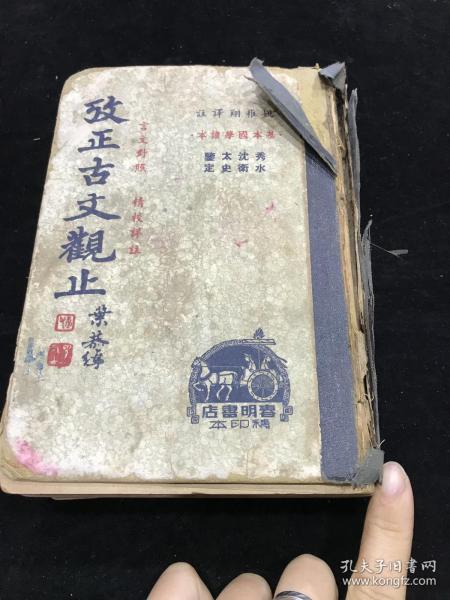 姚稚翔譯註
·基本國學讀本·
秀水沈衛太史鑒定
言文對照 精校詳註
攷正古文觀止
葉恭綽
春明書店
精印本
孔夫子旧书网
www.kongfz.com